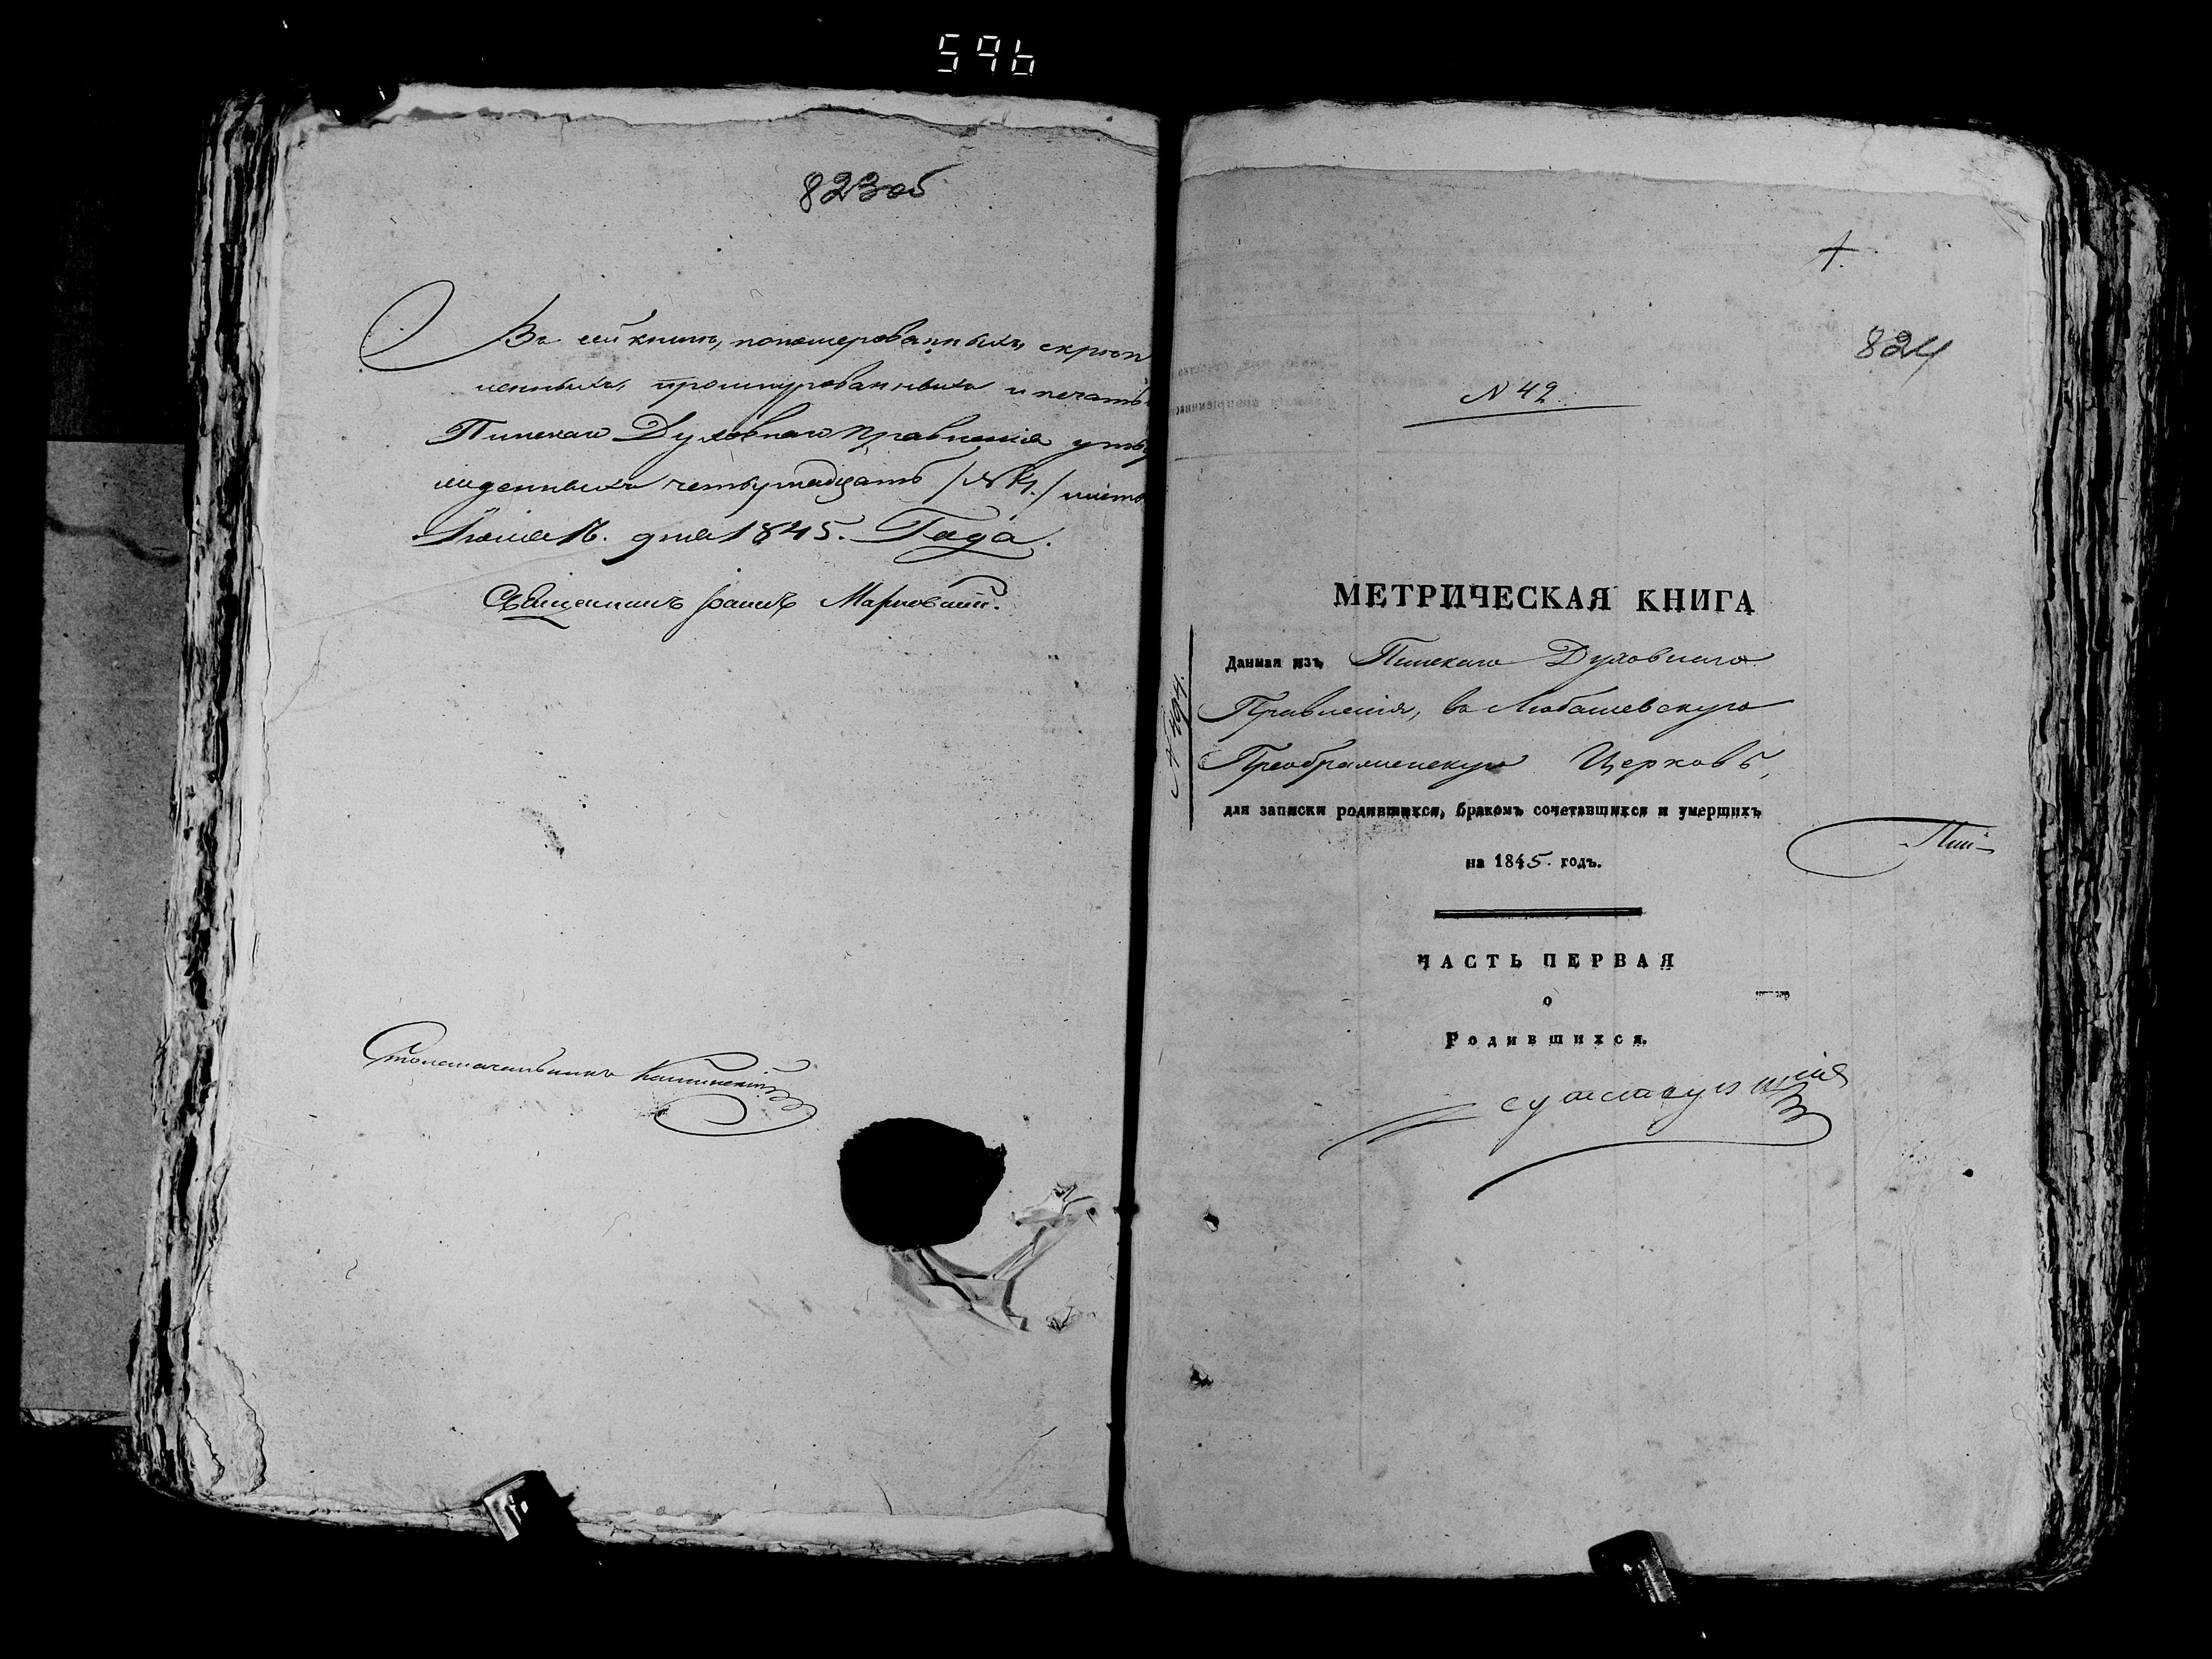 596
823об
Въ сей книгѣ, пономерованныхъ, скрѣп
ленныхъ, прошнурованныхъ и печатью
Пинскаго Духовнаго Правленія утвер
жденныхъ четырнадцать /№ 14./ листов
Іюля 16. дня 1845. Года.
Священникъ Іоаннъ
Столоначальникъ
1.
824
№ 42.
МЕТРИЧЕСКАЯ КНИГА
Данная изъ Пинскаго Духовнаго
Правленія, въ Любашевскую
Преображенскую Церковь,
для записки родившихся, бракомъ сочетавшихся и умершихъ
на 1845. годъ.
Пин-
ЧАСТЬ ПЕРВАЯ
о
Родившихся.